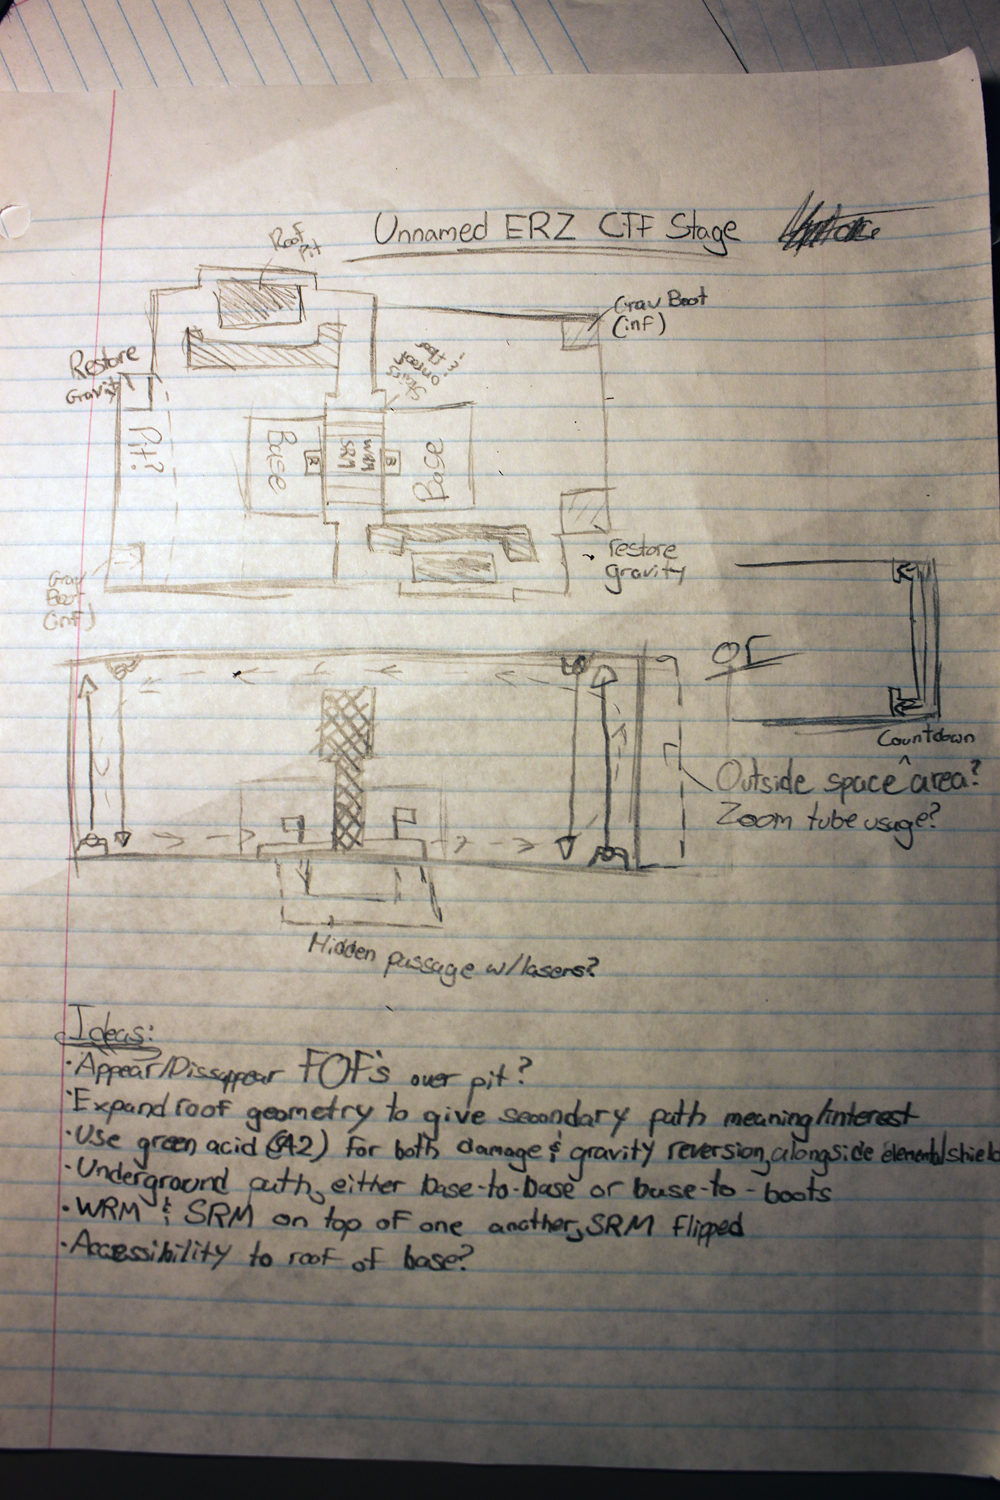 Unnamed ERZ CTF Stage
Roof
Pit
Grav Boot
(inf)
Restore
Gravity
Stairs
on roof
Pit?
Base
R
SRM
WRM
B
Base
restore
gravity
Grav
Boot
(inf)
or
Countdown
Outside space ^ area?
Zoom tube usage?
Hidden passage w/lasers?
Ideas:
·Appear/Disappear FOF's over pit?
·Expand roof geometry to give secondary path meaning/interest
·Use green acid (SA2) for both damage & gravity reversion, alongside elemental shield
·Underground path, either base-to-base or base-to-boots
·WRM & SRM on top of one another, SRM flipped
·Accessibility to roof of base?